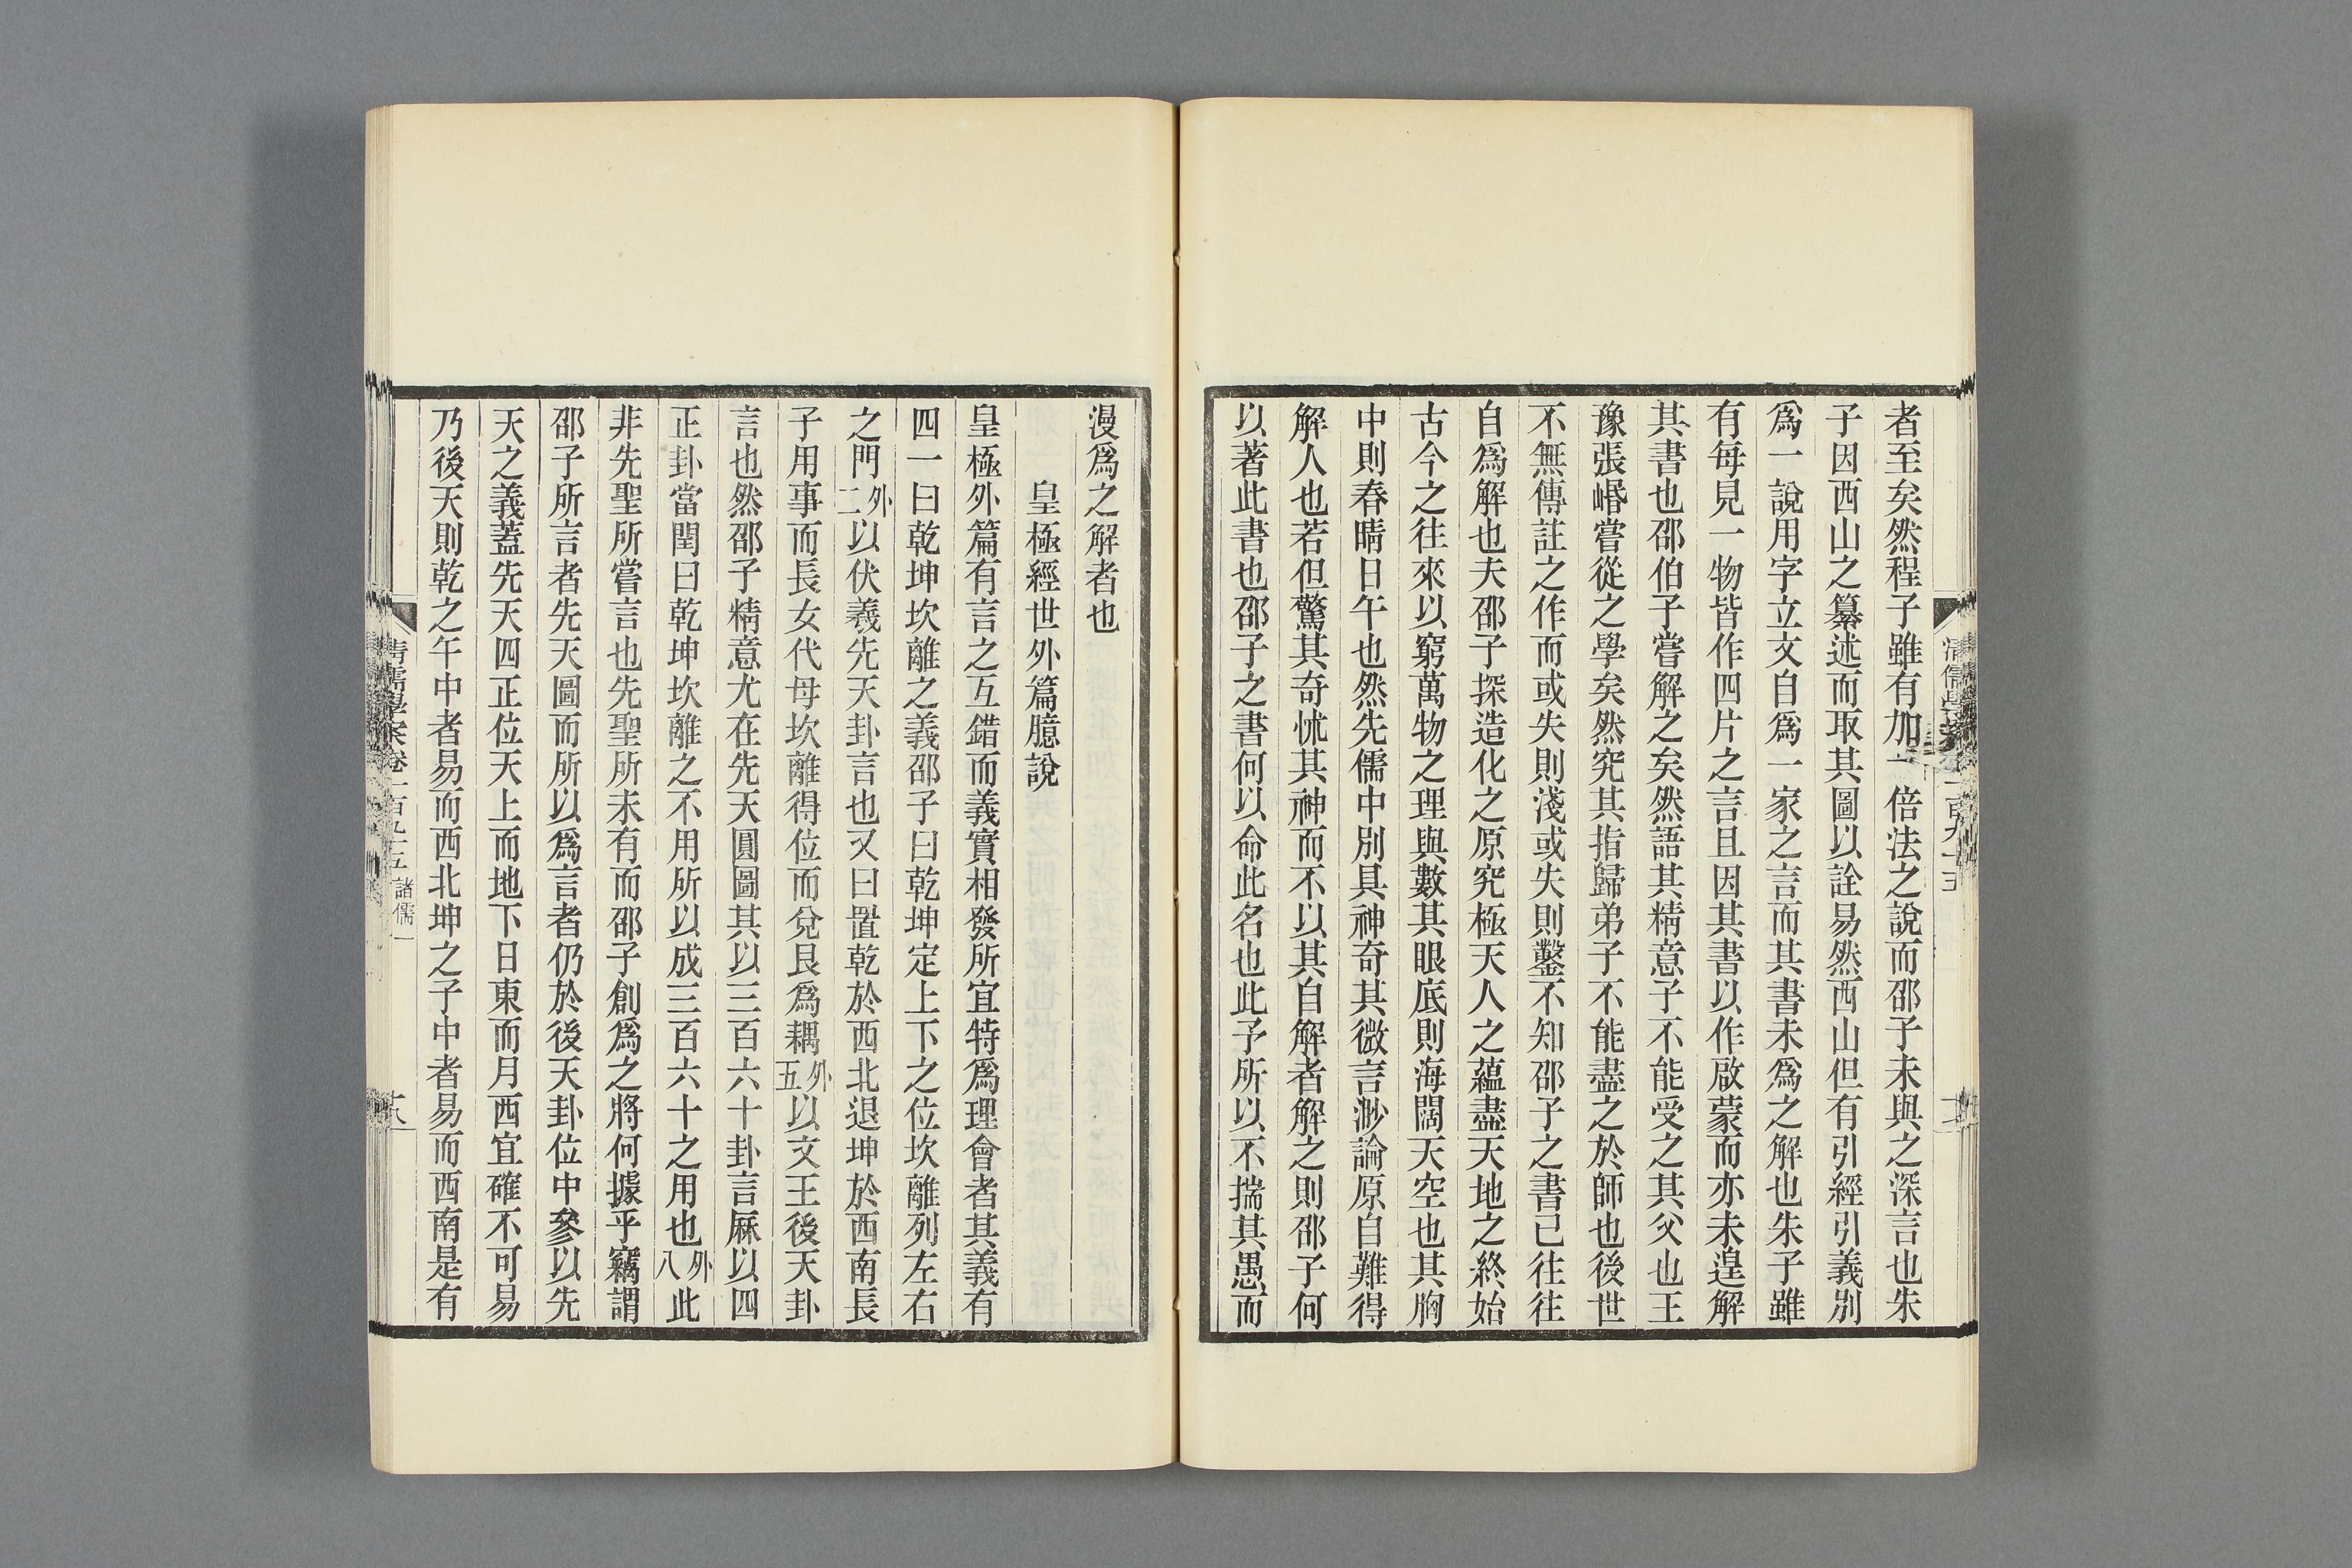 者至矣然程子雖有加一倍法之說而邵子未與之深言也朱
子因西山之纂述而取其圖以詮易然西山但有引經引義別
爲一說用字立文自爲一家之言而其書未爲之解也朱子雖
有每見一物皆作四片之言且因其書以作啟蒙而亦未遑解
其書也邵伯子嘗解之矣然語其精意子不能受之其父也王
豫張㟭嘗從之學矣然究其指歸弟子不能盡之於師也後世
不無傳註之作而或失則淺或失則鑿不知邵子之書已往往
自爲解也夫邵子探造化之原究極天人之蘊盡天地之終始
古今之往來以窮萬物之理與數其眼底則海闊天空也其胸
中則春晴日午也然先儒中別具神奇其微言渺論原自難得
解人也若但驚其奇怵其神而不以其自解者解之則邵子何
以著此書也邵子之書何以命此名也此予所以不揣其愚而
漫爲之解者也
皇極經世外篇臆說
皇極外篇有言之互錯而義實相發所宜特爲理會者其義有
四一曰乾坤坎離之義邵子曰乾坤定上下之位坎離列左右
之門外二以伏羲先天卦言也又曰置乾於西北退坤於西南長
子用事而長女代母坎離得位而兌艮爲耦外五以文王後天卦
言也然邵子精意尤在先天圓圖其以三百六十卦言厤以四
正卦當閏曰乾坤坎離之不用所以成三百六十之用也外八此
非先聖所嘗言也先聖所未有而邵子創爲之將何據乎竊謂
邵子所言者先天圖而所以爲言者仍於後天卦位中參以先
天之義蓋先天四正位天上而地下日東而月西宜確不可易
乃後天則乾之午中者易而西北坤之子中者易而西南是有
清儒學案卷一百九十五 諸儒一
十八